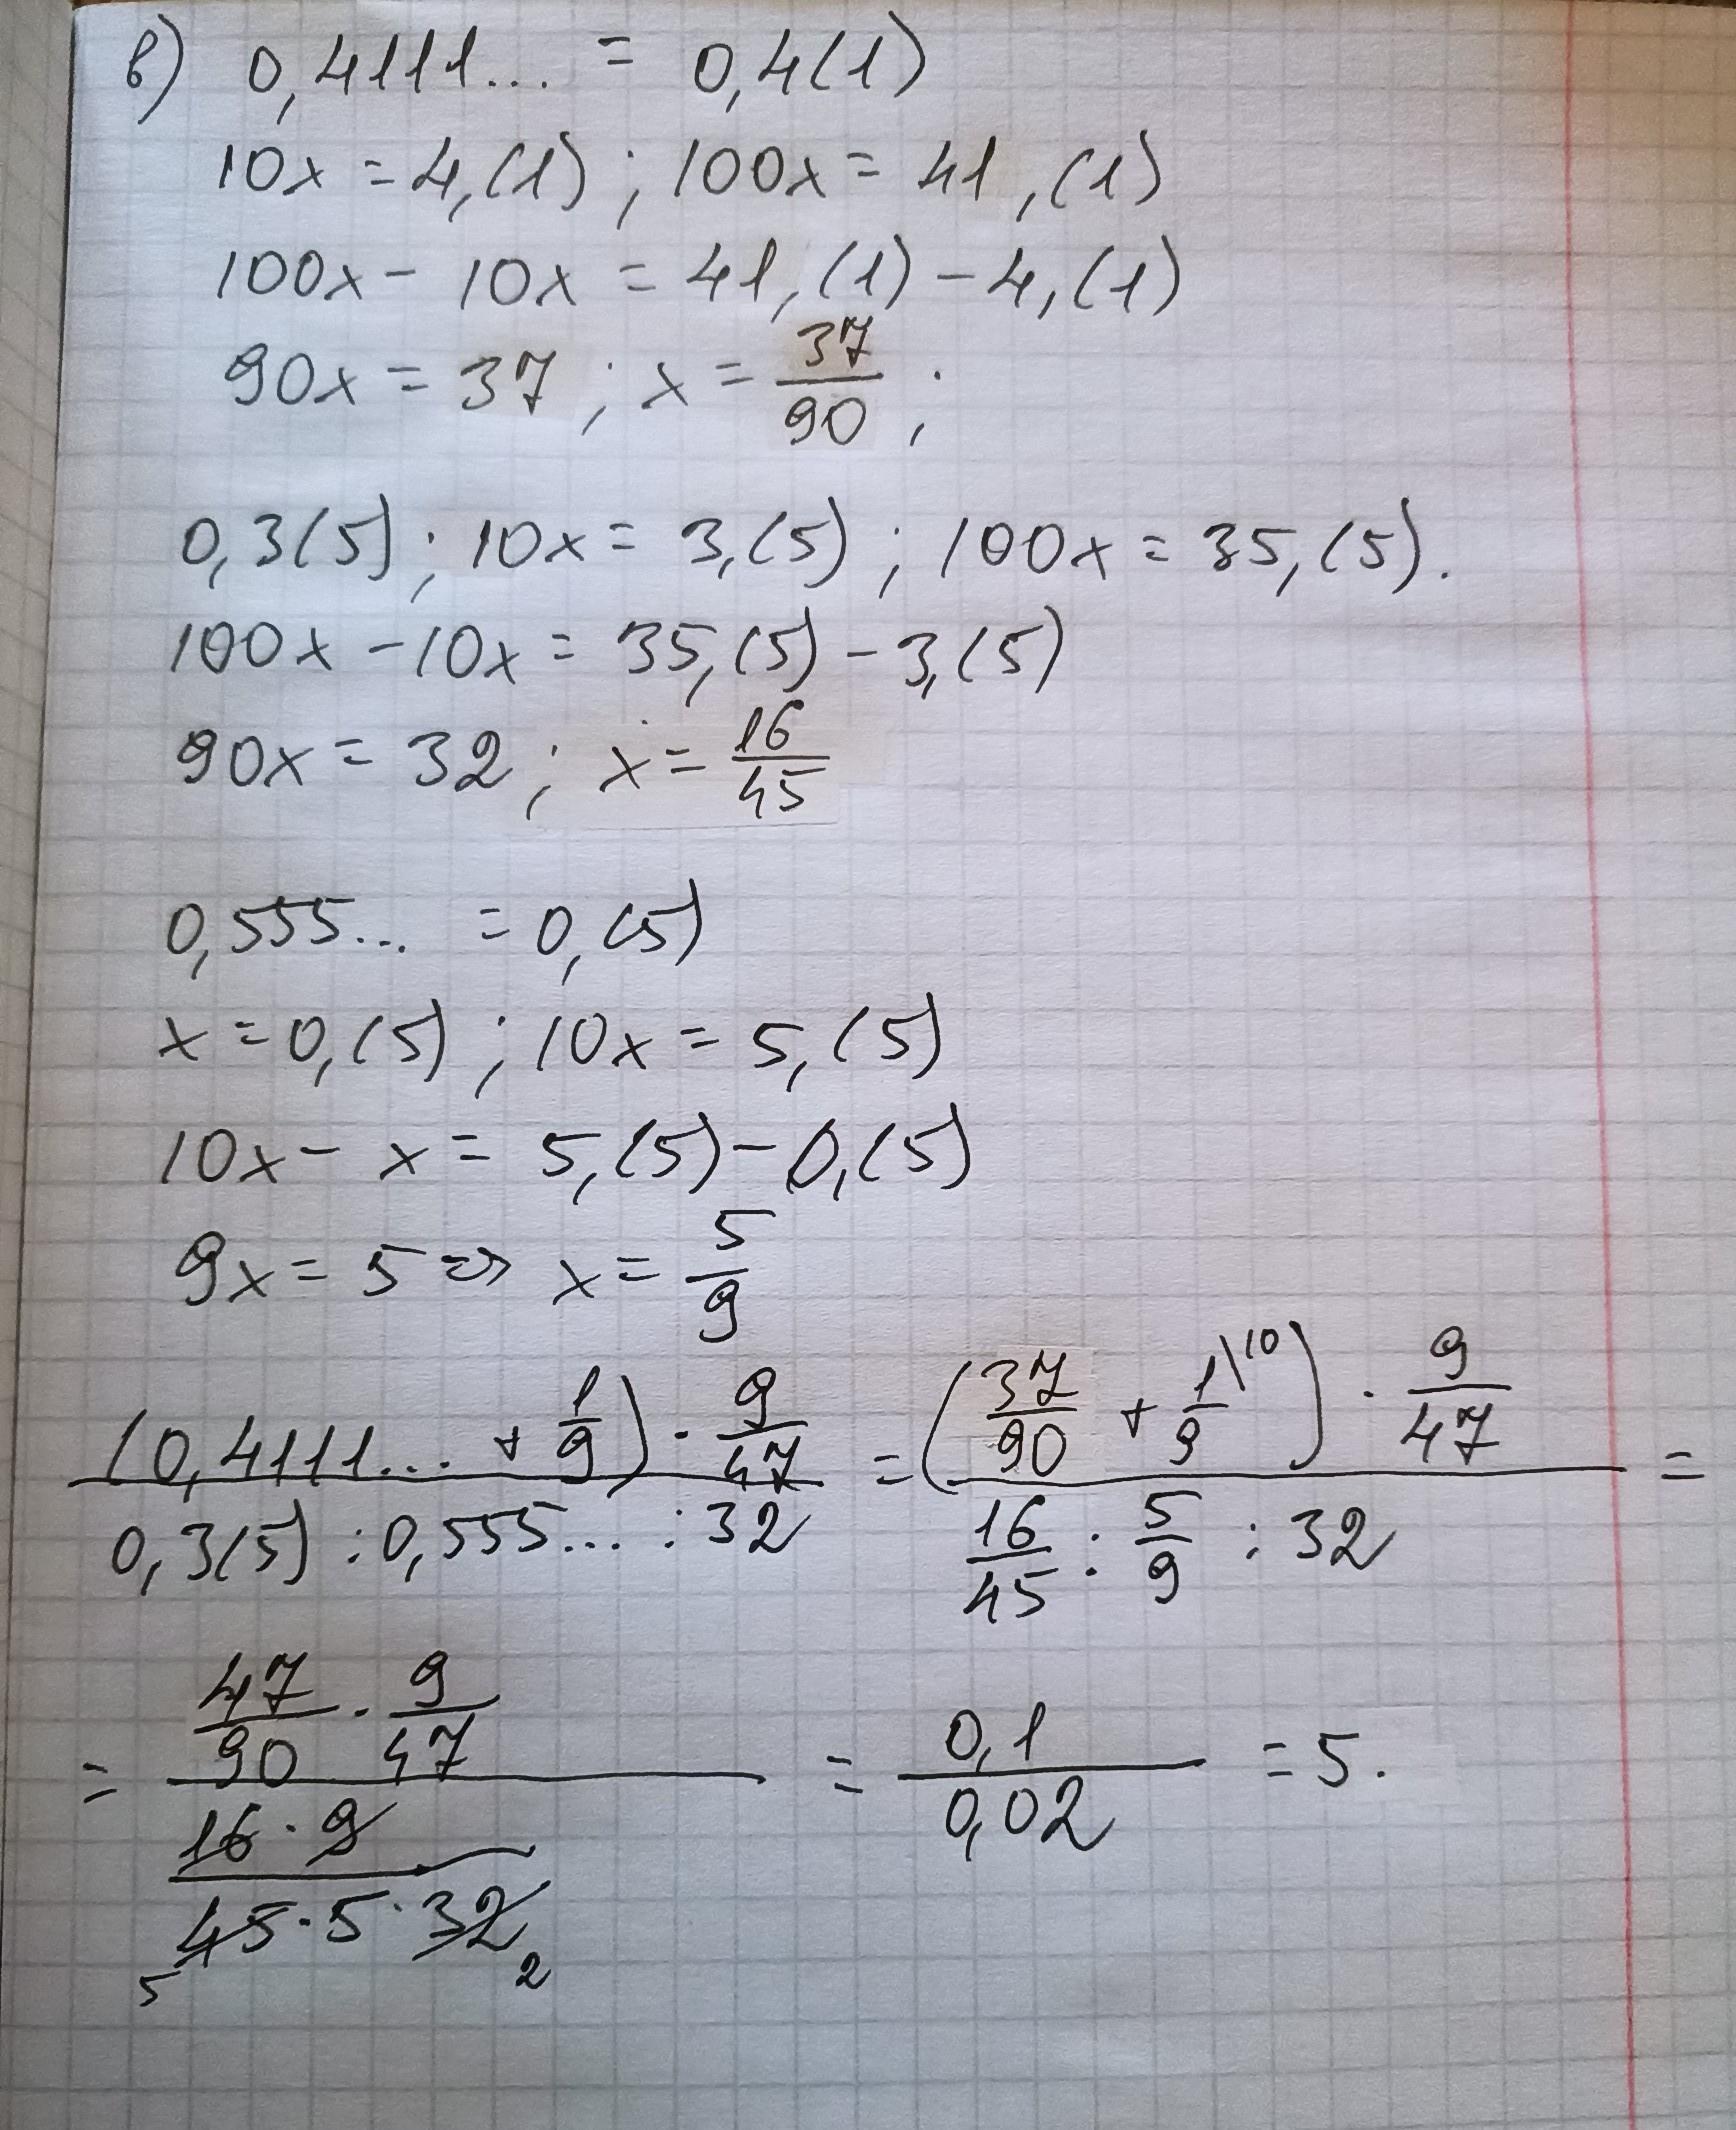 в) 0,4111... = 0,4(1)
10x = 4,(1) ; 100x = 41,(1)
100x - 10x = 41,(1) - 4,(1)
90x = 37 ; x = 37/90 ;
0,3(5) ; 10x = 3,(5) ; 100x = 35,(5).
100x - 10x = 35,(5) - 3,(5)
90x = 32 ; x = 16/45
0,555... = 0,(5)
x = 0,(5) ; 10x = 5,(5)
10x - x = 5,(5) - 0,(5)
9x = 5 => x = 5/9
(0,4111... + 1/9) · 9/47 / 0,3(5) : 0,555... : 32 = (37/90 + 1/9\10) · 9/47 / 16/45 : 5/9 : 32 =
= 47/90 · 9/47 / 16·9 / 45·5·32 5 2 = 0,1/0,02 = 5.